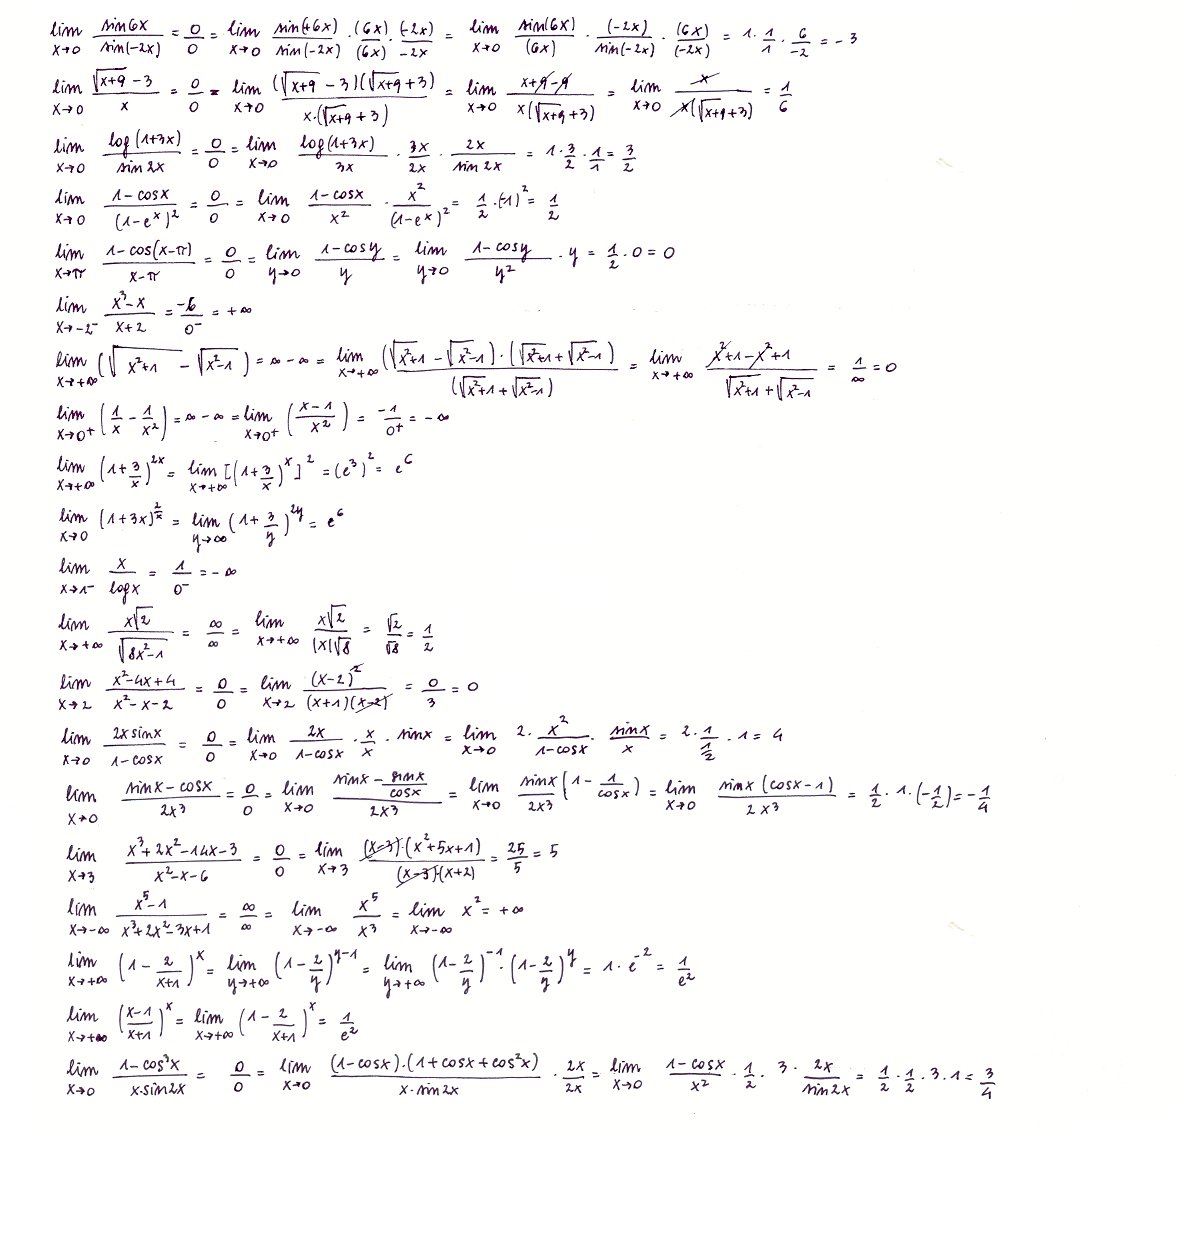 lim x→0 sin6x/sin(-2x) = 0/0 = lim x→0 sin(+6x)/sin(-2x) · (6x)/(6x) · (-2x)/-2x = lim x→0 sin(6x)/(6x) · (-2x)/sin(-2x) · (6x)/(-2x) = 1 · 1/1 · 6/-2 = -3
lim x→0 (√(x+9) - 3)/x = 0/0 = lim x→0 ((√(x+9) - 3)(√(x+9) + 3))/(x·(√(x+9) + 3)) = lim x→0 (x+9-9)/(x(√(x+9) + 3)) = lim x→0 x/(x(√(x+9) + 3)) = 1/6
lim x→0 log(1+3x)/sin2x = 0/0 = lim x→0 log(1+3x)/3x · 3x/2x · 2x/sin2x = 1 · 3/2 · 1/1 = 3/2
lim x→0 (1-cosx)/(1-e^x)² = 0/0 = lim x→0 (1-cosx)/x² · x²/(1-e^x)² = 1/2 · (-1)² = 1/2
lim x→π (1-cos(x-π))/(x-π) = 0/0 = lim y→0 (1-cosy)/y = lim y→0 (1-cosy)/y² · y = 1/2 · 0 = 0
lim x→-2⁻ (x³-x)/(x+2) = -6/0⁻ = +∞
lim x→+∞ (√(x²+1) - √(x²-1)) = ∞ - ∞ = lim x→+∞ ((√(x²+1) - √(x²-1)) · (√(x²+1) + √(x²-1)))/(√(x²+1) + √(x²-1)) = lim x→+∞ (x²+1-x²+1)/(√(x²+1) + √(x²-1)) = 1/∞ = 0
lim x→0⁺ (1/x - 1/x²) = ∞ - ∞ = lim x→0⁺ ((x-1)/x²) = -1/0⁺ = -∞
lim x→+∞ (1+3/x)^2x = lim x→+∞ [(1+3/x)^x]² = (e³)² = e⁶
lim x→0 (1+3x)^(2/x) = lim y→∞ (1+3/y)^2y = e⁶
lim x→1⁻ x/logx = 1/0⁻ = -∞
lim x→+∞ x√2/√(8x²-1) = ∞/∞ = lim x→+∞ x√2/|x|√8 = √2/√8 = 1/2
lim x→2 (x²-4x+4)/(x²-x-2) = 0/0 = lim x→2 (x-2)²/((x+1)(x-2)) = 0/3 = 0
lim x→0 2x sinx/(1-cosx) = 0/0 = lim x→0 2x/(1-cosx) · x/x · sinx = lim x→0 2 · x²/(1-cosx) · sinx/x = 2 · 1/(1/2) · 1 = 4
lim x→0 (sinx-cosx)/2x³ = 0/0 = lim x→0 (sinx - sinx/cosx)/2x³ = lim x→0 sinx/2x³ (1 - 1/cosx) = lim x→0 sinx(cosx-1)/2x³ = 1/2 · 1 · (-1/2) = -1/4
lim x→3 (x³+2x²-14x-3)/(x²-x-6) = 0/0 = lim x→3 ((x-3)·(x²+5x+1))/((x-3)·(x+2)) = 25/5 = 5
lim x→-∞ (x⁵-1)/(x³+2x²-3x+1) = ∞/∞ = lim x→-∞ x⁵/x³ = lim x→-∞ x² = +∞
lim x→+∞ (1 - 2/(x+1))^x = lim y→+∞ (1 - 2/y)^(y-1) = lim y→+∞ (1 - 2/y)^-1 · (1 - 2/y)^y = 1 · e^-2 = 1/e²
lim x→+∞ ((x-1)/(x+1))^x = lim x→+∞ (1 - 2/(x+1))^x = 1/e²
lim x→0 (1-cos³x)/(x·sin2x) = 0/0 = lim x→0 ((1-cosx)·(1+cosx+cos²x))/(x·sin2x) · 2x/2x = lim x→0 (1-cosx)/x² · 1/2 · 3 · 2x/sin2x = 1/2 · 1/2 · 3 · 1 = 3/4